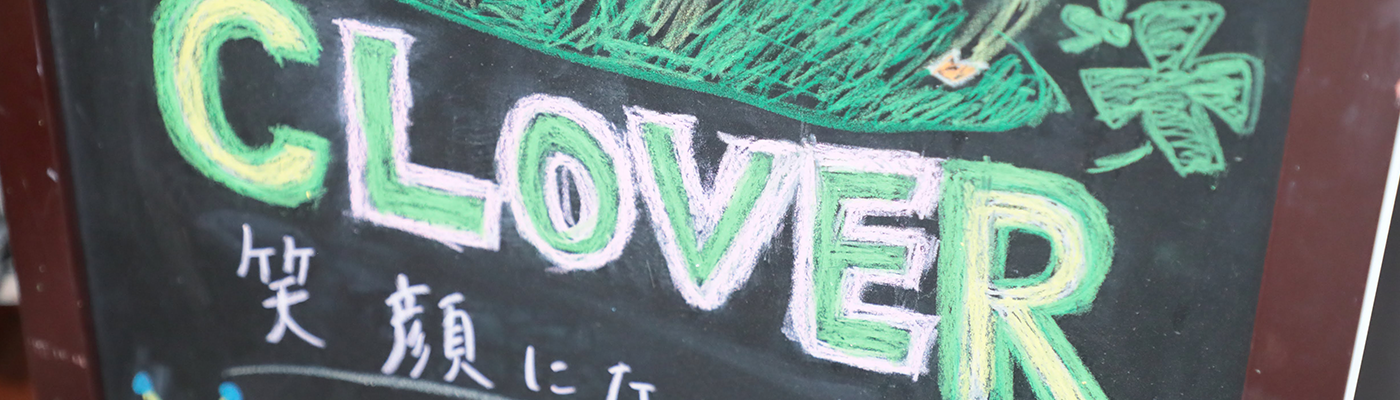 CLOVER
笑顔にな